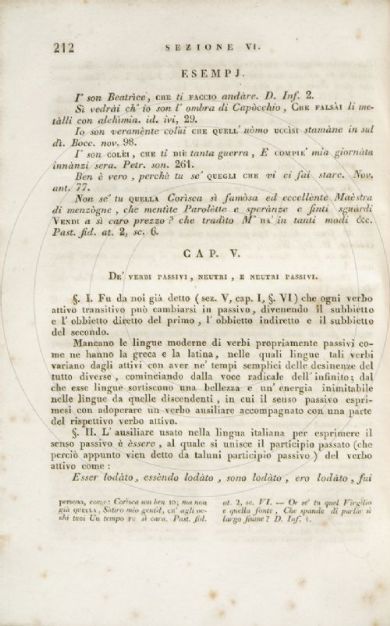 212 SEZIONE VI.
ESEMPJ.
I' son Beatrìce, CHE ti FACCIO andàre. D. Inf. 2.
Sì vedrài ch' io son l' ombra di Capòcchio, CHE FALSÀI li me-
tàlli con alchìmia. id. ivi, 29.
Io son veramènte colùi CHE QUELL' uòmo UCCISI stamàne in sul
dì. Bocc. nov. 98.
I' son COLÈI, CHE ti DIÈ tanta guerra, E COMPIÈ' mia giornàta
innànzi sera. Petr. son. 261.
Ben è vero, perchè tu se' QUEGLI CHE vi ci fai stare. Nov.
ant. 77.
Non se' tu QUELLA Corìsca sì famòsa ed eccellènte Maèstra
di menzògne, che mentìte Parolètte e sperànze e finti sguardi
VENDI a sì caro prezzo? che tradìto M' HA' in tanti modi &c.
Past. fid. at. 2, sc. 6.
CAP. V.
DE' VERBI PASSIVI, NEUTRI, E NEUTRI PASSIVI.
§. I. Fu da noi già detto (sez. V, cap. I, §. VI) che ogni verbo
attivo transitivo può cambiarsi in passivo, divenendo il subbietto
e l' obbietto diretto del primo, l' obbietto indiretto e il subbietto
del secondo.
Mancano le lingue moderne di verbi propriamente passivi co-
me ne hanno la greca e la latina, nelle quali lingue tali verbi
variano dagli attivi con aver ne' tempi semplici delle desinenze del
tutto diverse, cominciando dalla voce radicale dell' infinito; dal
che esse lingue sortiscono una bellezza e un' energia inimitabile
nelle lingue da quelle discendenti, in cui il senso passivo espri-
mesi con adoperare un verbo ausiliare accompagnato con una parte
del rispettivo verbo attivo.
§. II. L' ausiliare usato nella lingua italiana per esprimere il
senso passivo è èssere, al quale si unisce il participio passato (che
perciò appunto vien detto da taluni participio passivo) del verbo
attivo come:
Esser lodàto, essèndo lodàto, sono lodàto, ero lodàto, fui
persona, come: Corìsca son ben IO; ma non
già QUELLA, Sàtiro mio gentìl, ch' agli oc-
chi tuoi Un tempo FU sì cara. Past. fid.
at. 2, sc. VI. — Or se' tu quel Virgìlio
e quella fonte, Che spande di parlàr sì
largo fiume? D. Inf. 1.